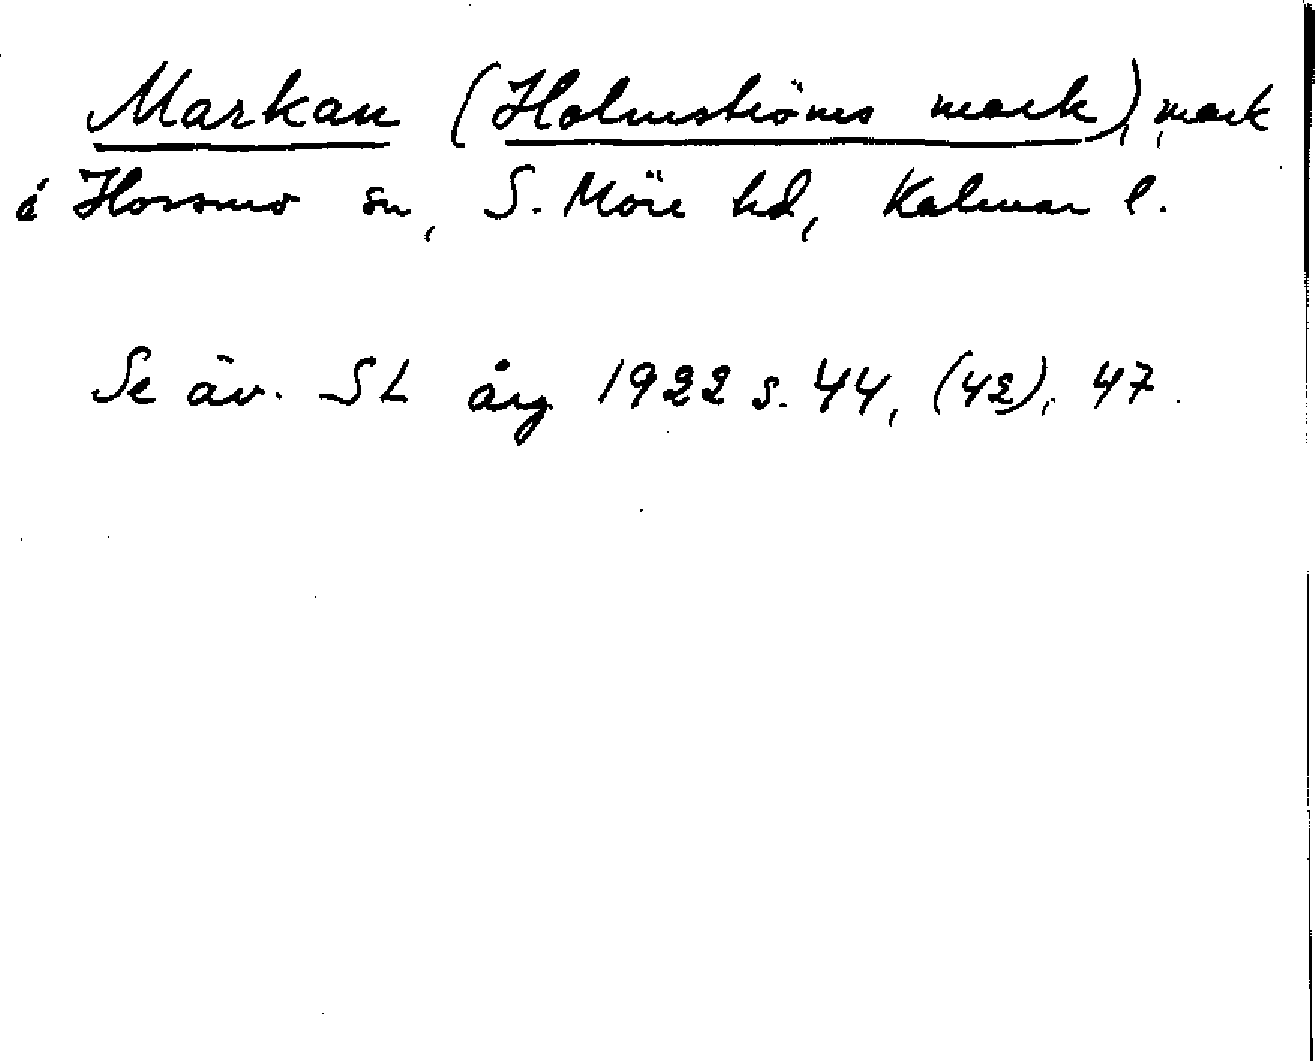 Markan (Holmströms mark), mark
i Hossmo sn, S. Möre hd, Kalmar l.
Se äv. SL årg. 1922 s. 44, (42), 47.